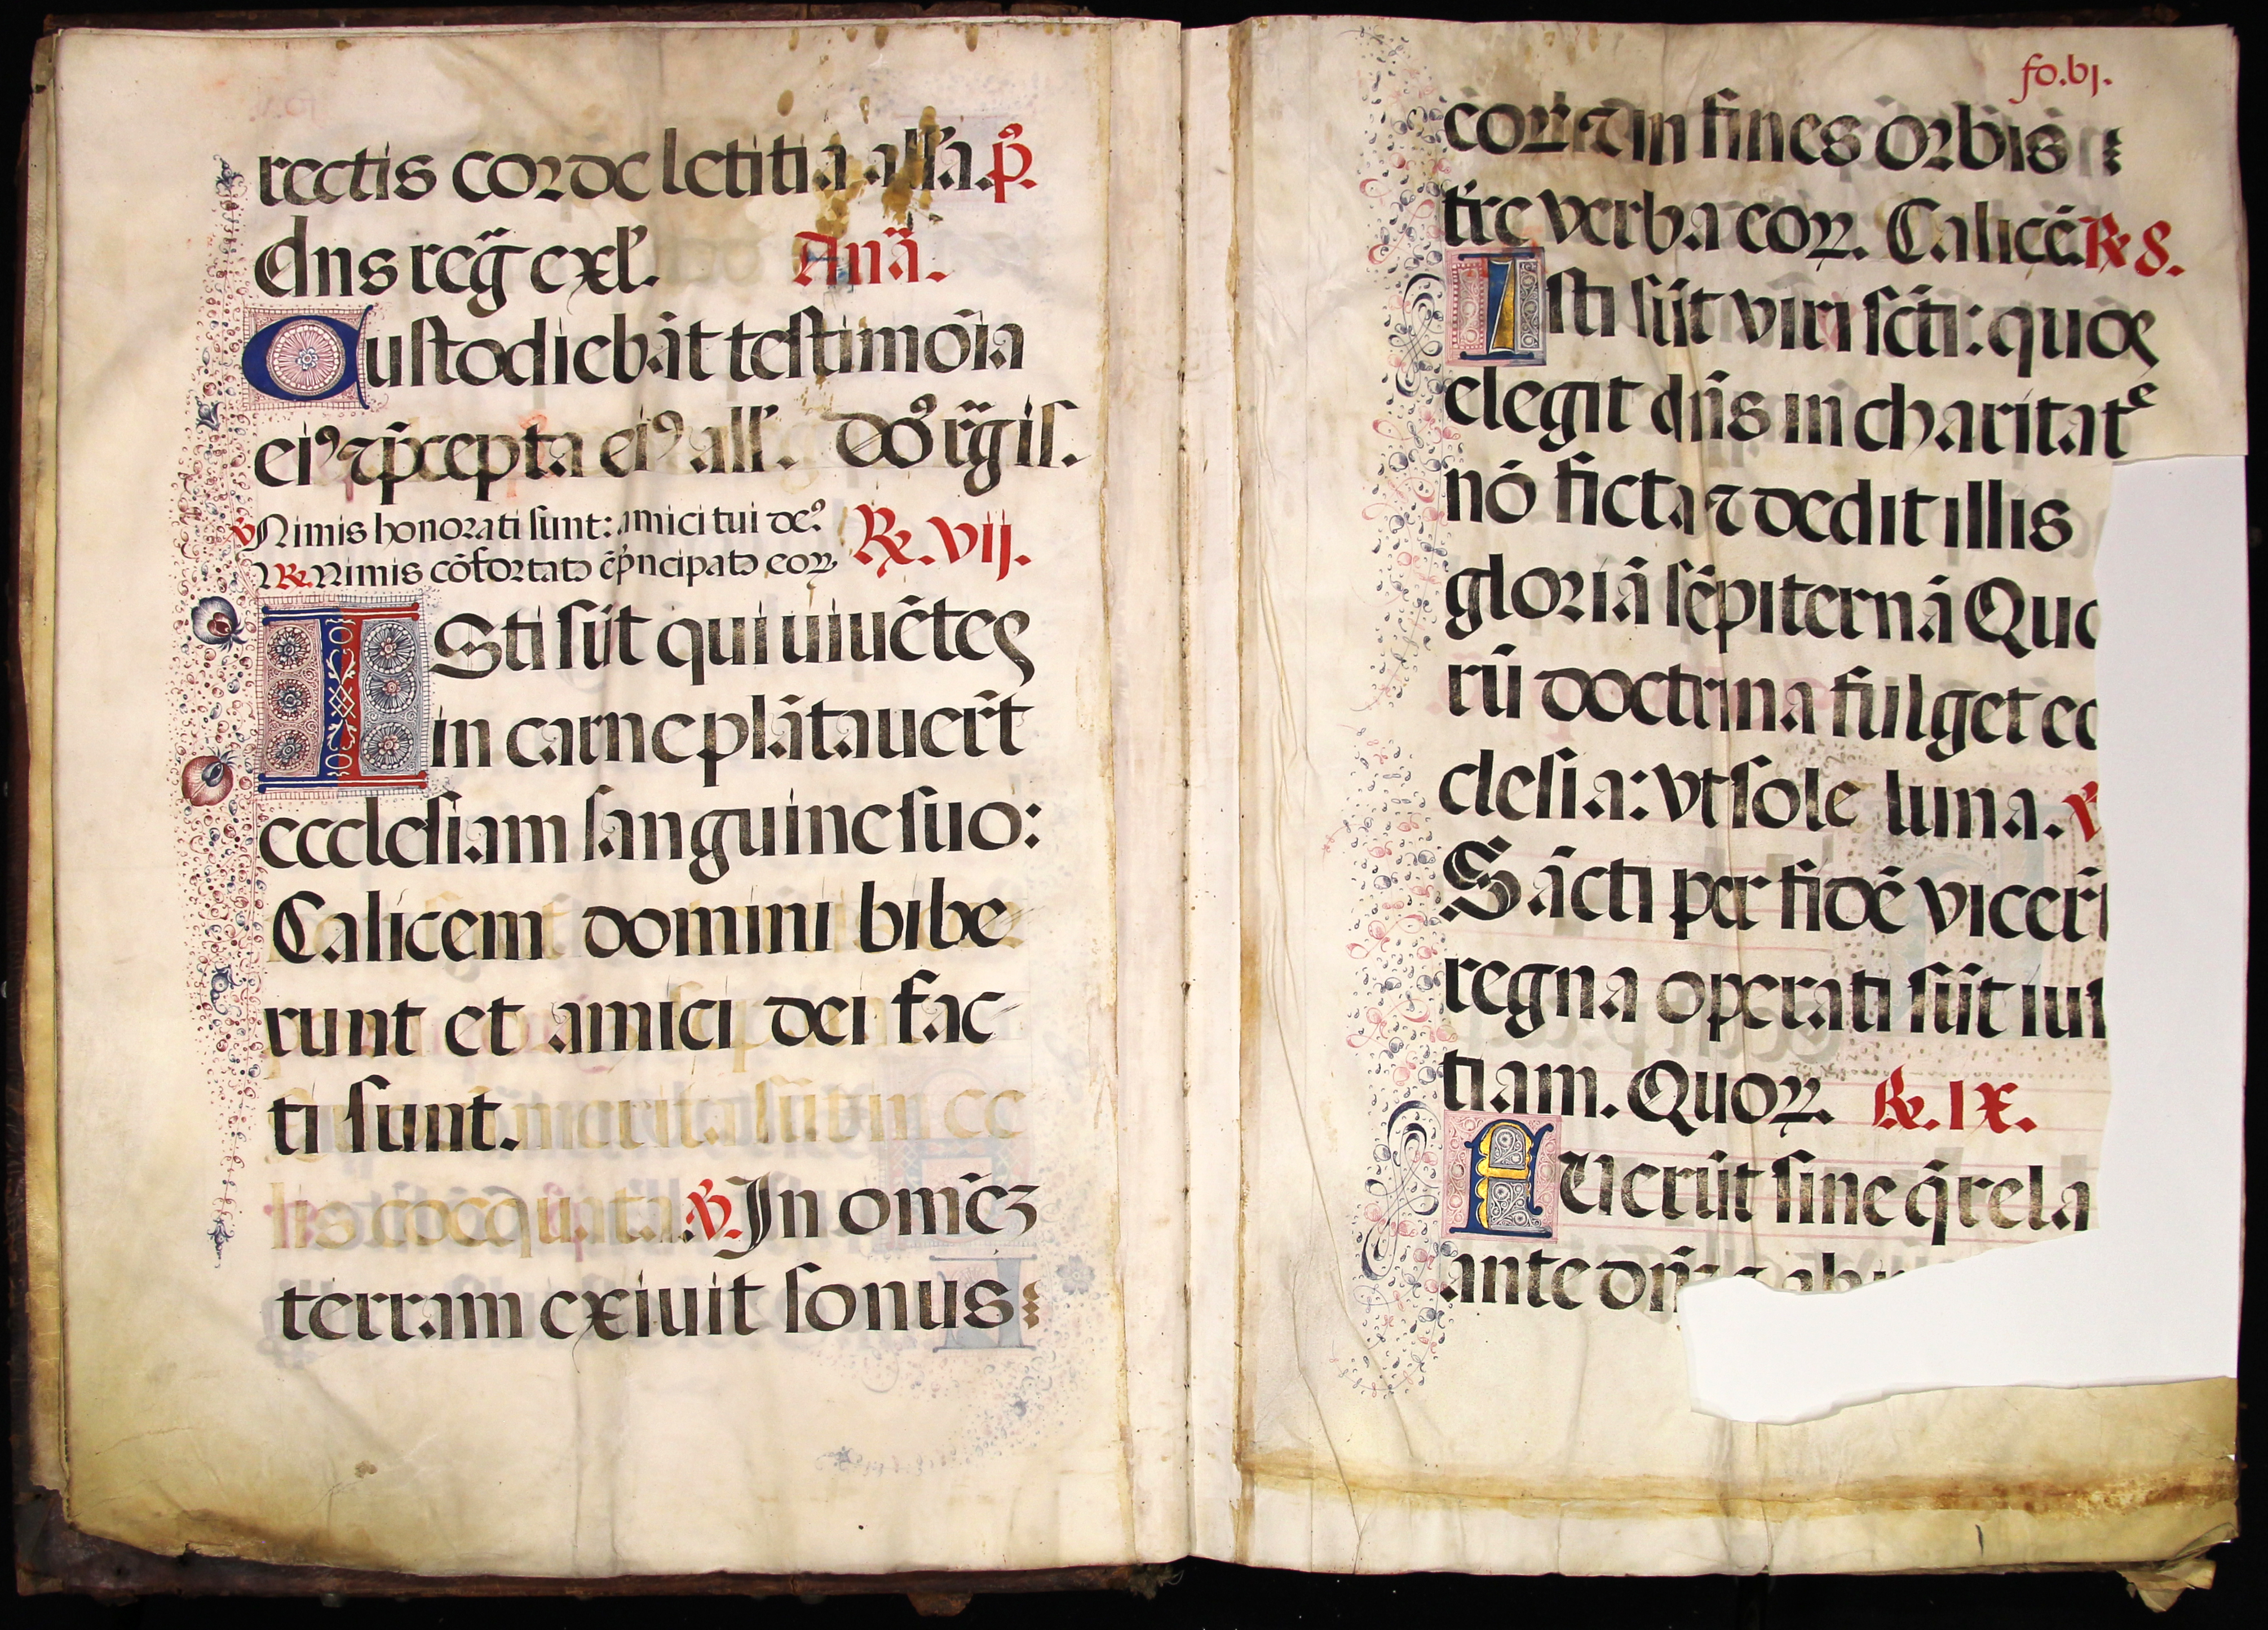 rectis corde letitia alľa. p̃.
dns reg̃ exľ. Anã.
Custodiebãt testimõia
eiꝰ ⁊ p̃cepta eiꝰ all'. Doꝰ r̃gis.
℣ Nimis honorati sunt: amici tui deꝰ
℟. Nimis cõfortatꝰ ẽ p̃ncipatꝰ eoꝝ ℟. vij.
ISti sũt qui uiuẽtes
in carne plãtauer̃t
ecclesiam sanguine suo:
Calicem domini bibe
runt et amici dei fac
ti sunt.
℣. In omẽz
terram exiuit sonus
fo. vj.
eoꝝ ⁊ in fines orbis
tre verba eoꝝ. Calicẽ ℟ 8.
Isti sũt viri sc̃ti: quos
elegit dñs in charitate
nõ ficta ⁊ dedit illis
gloriã sẽpiternã Quo
rũ doctrina fulget ec
clesia: vt sole luna. ℣
Sãcti per fidẽ vicer̃
regna operati sũt ius
tiam. Quoꝝ. ℟. IX.
Fuerũt sine q̃rela
ante dñ